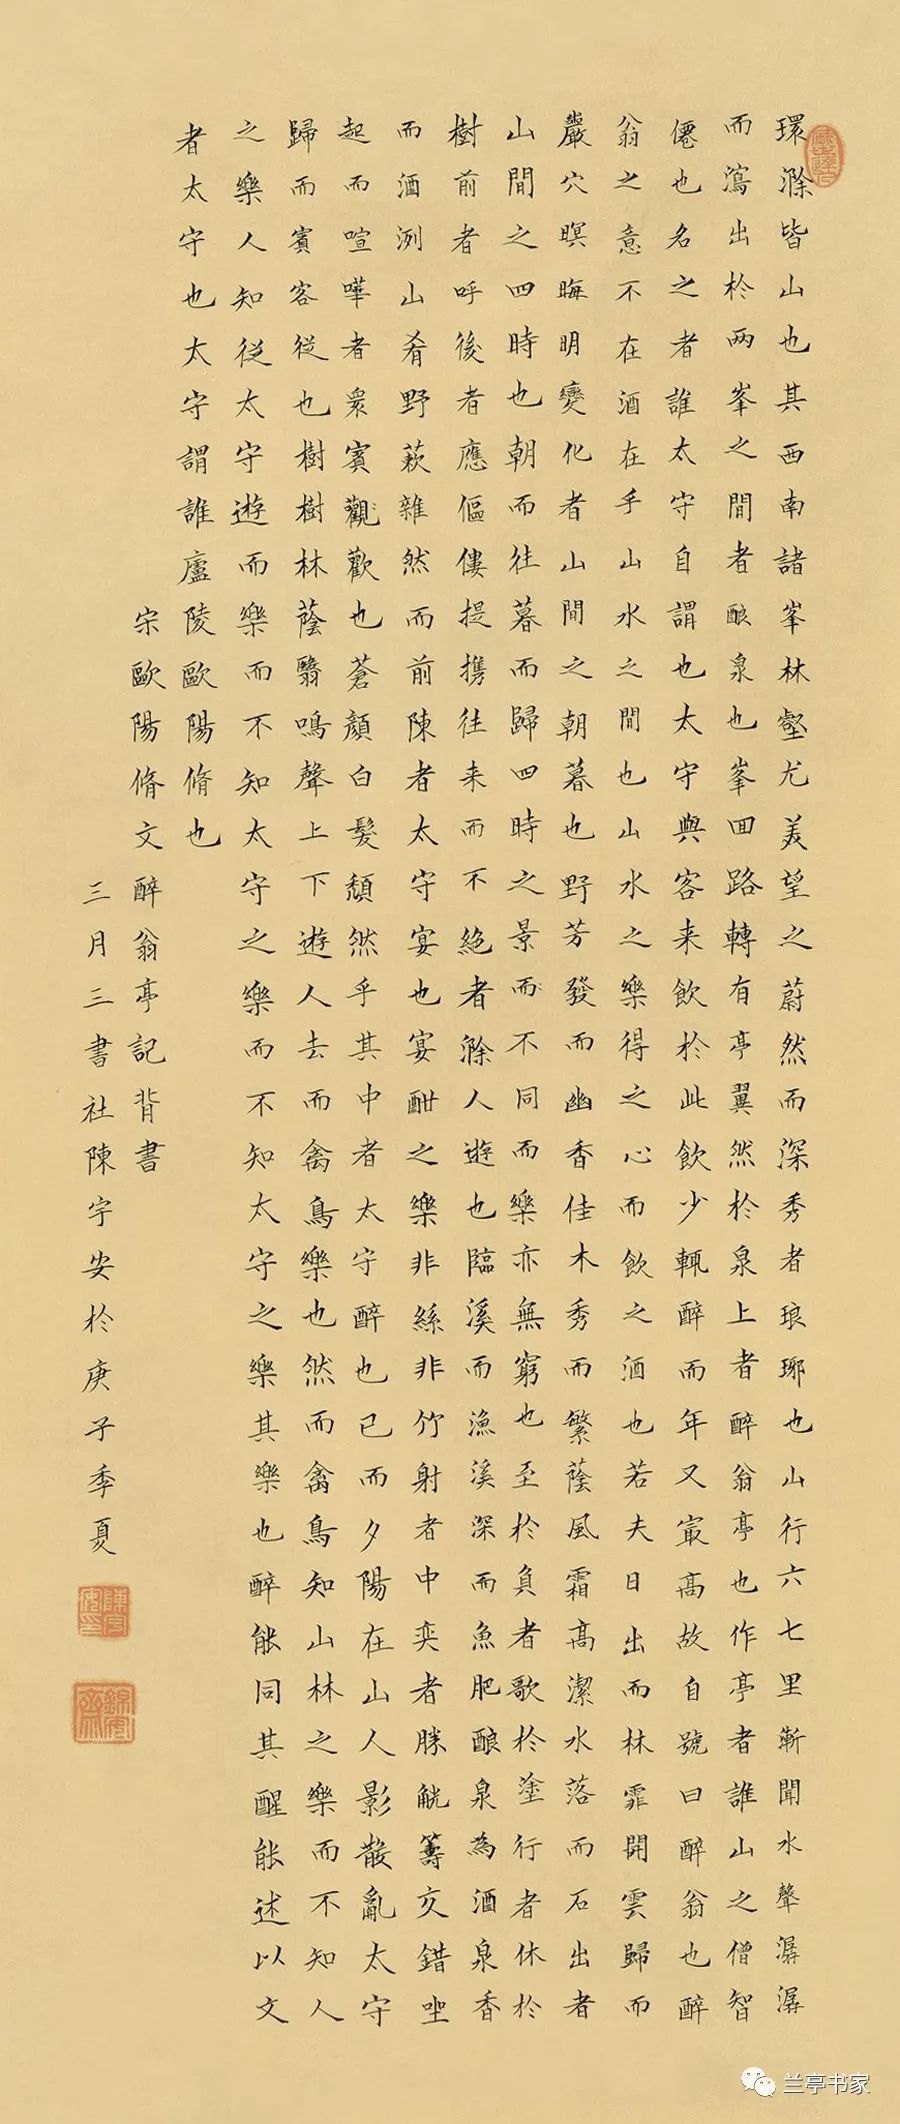 環滁皆山也其西南諸峯林壑尤美望之蔚然而深秀者琅琊也山行六七里漸聞水聲潺潺
而瀉出於兩峯之間者酿泉也峯回路轉有亭翼然於泉上者醉翁亭也作亭者誰山之僧智
僊也名之者誰太守自謂也太守與客来飲於此飲少輒醉而年又最高故自號曰醉翁也醉
翁之意不在酒在乎山水之間也山水之樂得之心而飲之酒也若夫日出而林霏開雲歸而
巖穴暝晦明變化者山間之朝暮也野芳發而幽香佳木秀而繁蔭風霜高潔水落而石出者
山間之四時也朝而往暮而歸四時之景而不同而樂亦無窮也至於負者歌於塗行者休於
樹前者呼後者應傴僂提携往来而不絕者滁人遊也臨溪而漁溪深而魚肥酿泉為酒泉香
而酒洌山肴野蔌雜然而前陳者太守宴也宴酣之樂非絲非竹射者中奕者勝觥籌交錯坐
起而喧嘩者衆賓觀歡也蒼顏白髮頹然乎其中者太守醉也已而夕陽在山人影散亂太守
歸而賓客從也樹樹林蔭翳鳴聲上下遊人去而禽鳥樂也然而禽鳥知山林之樂而不知人
之樂人知從太守遊而樂而不知太守之樂而不知太守之樂其樂也醉能同其醒能述以文
者太守也太守謂誰廬陵歐陽脩也
宋歐陽脩文醉翁亭記背書
三月三書社陳宇安於庚子季夏
陳宇安印
兰亭书家